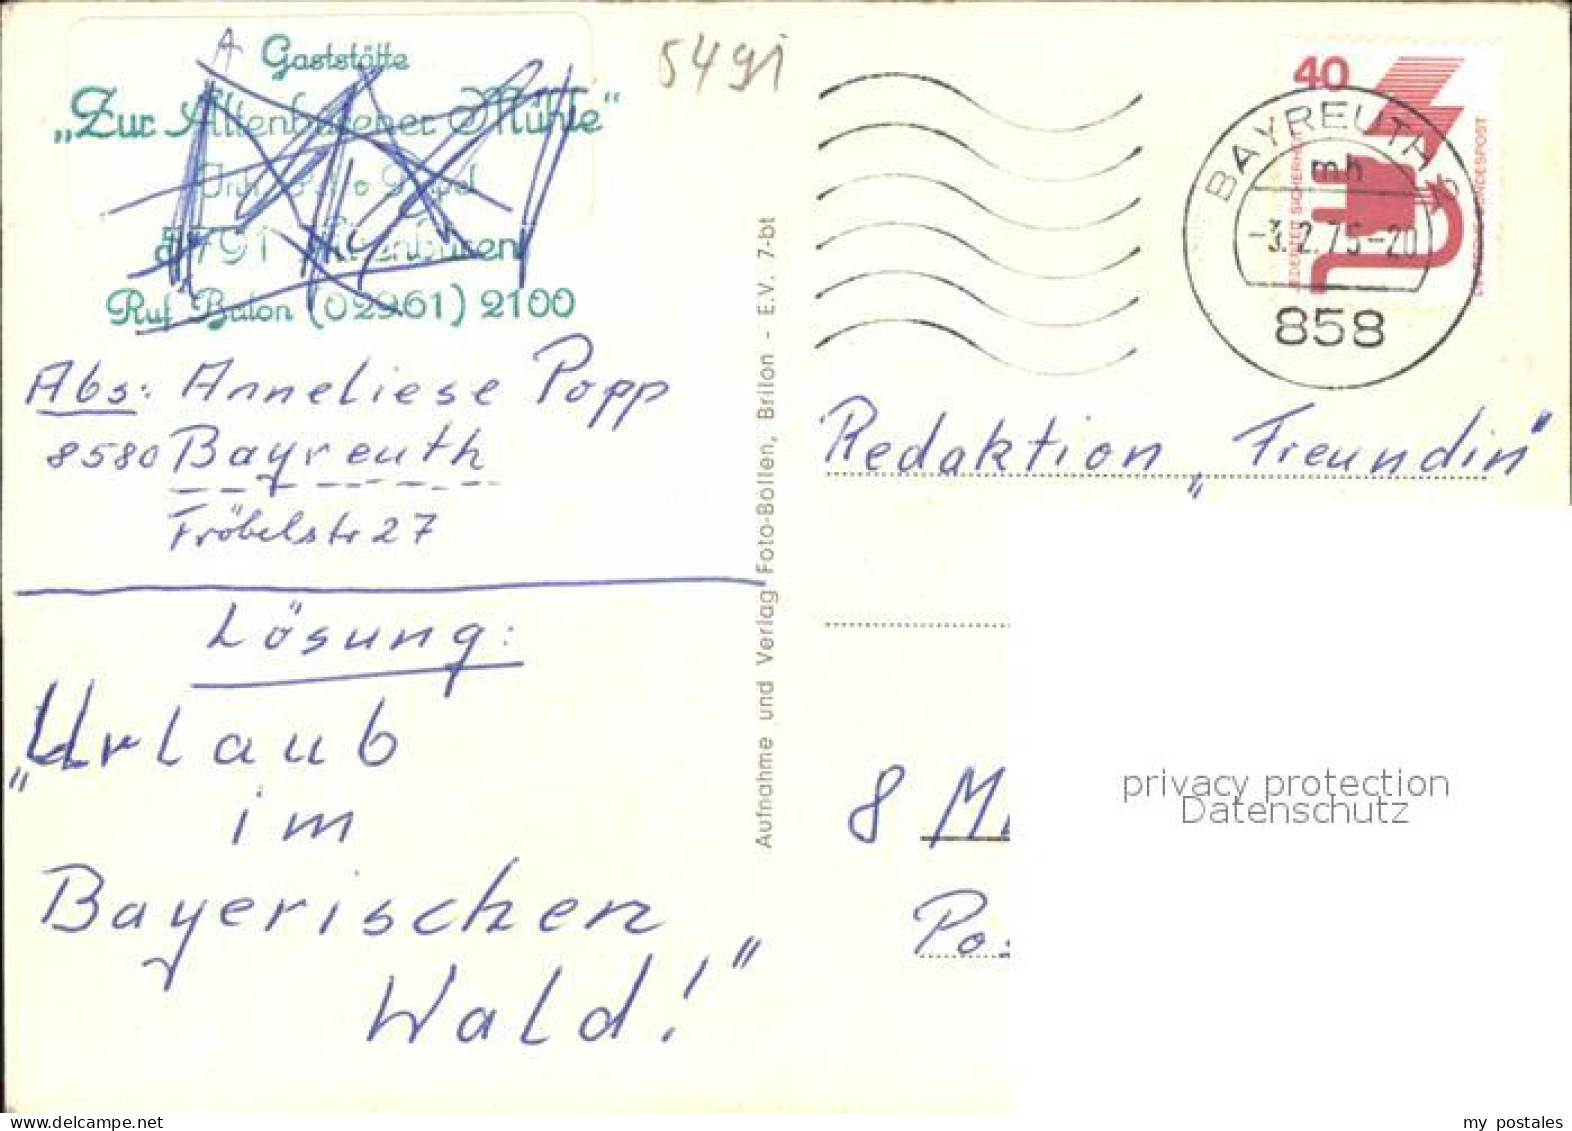 Gaststätte
„Zur Altenbürener Mühle“
5791 Altenbüren
Ruf Brilon (02961) 2100
Abs: Anneliese Popp
8580 Bayreuth
Fröbelstr 27
Lösung:
„Urlaub
im
Bayerischen
Wald!“
Aufnahme und Verlag Foto-Bollen, Brilon - E.V. 7-bt
5491
40
JEDERZEIT SICHERHEIT
BAYREUTH
mh
-3.2.75-20
858
Redaktion „Freundin“
8
privacy protection
Datenschutz
my postales